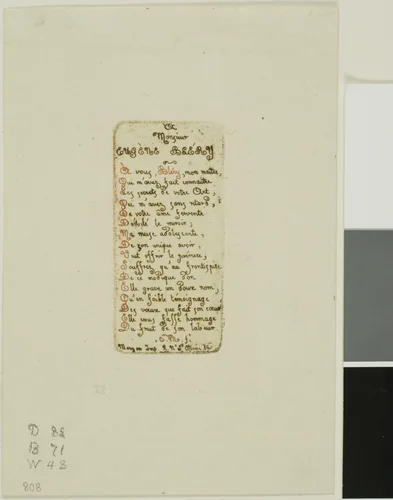 A
Monsieur
EUGÈNE BLÉRY
A vous, Bléry, mon maître,
Qui m'avez fait connaître
Les secrets de votre Art,
Qui m'avez, sans retard,
De votre âme fervente
Dévoilé le miroir;
Ma muse adolescente,
De son unique avoir,
Veut offrir les prémices,
Souffrez qu'au frontispice
De ce modique don
Elle grave un doux nom,
Qu'en faible témoignage
Des vœux que fait son cœur
Elle vous fasse hommage
Du fruit de son labeur
C. M.
Meryon Imp. R. N. St.
D 88
B 71
W 43
808